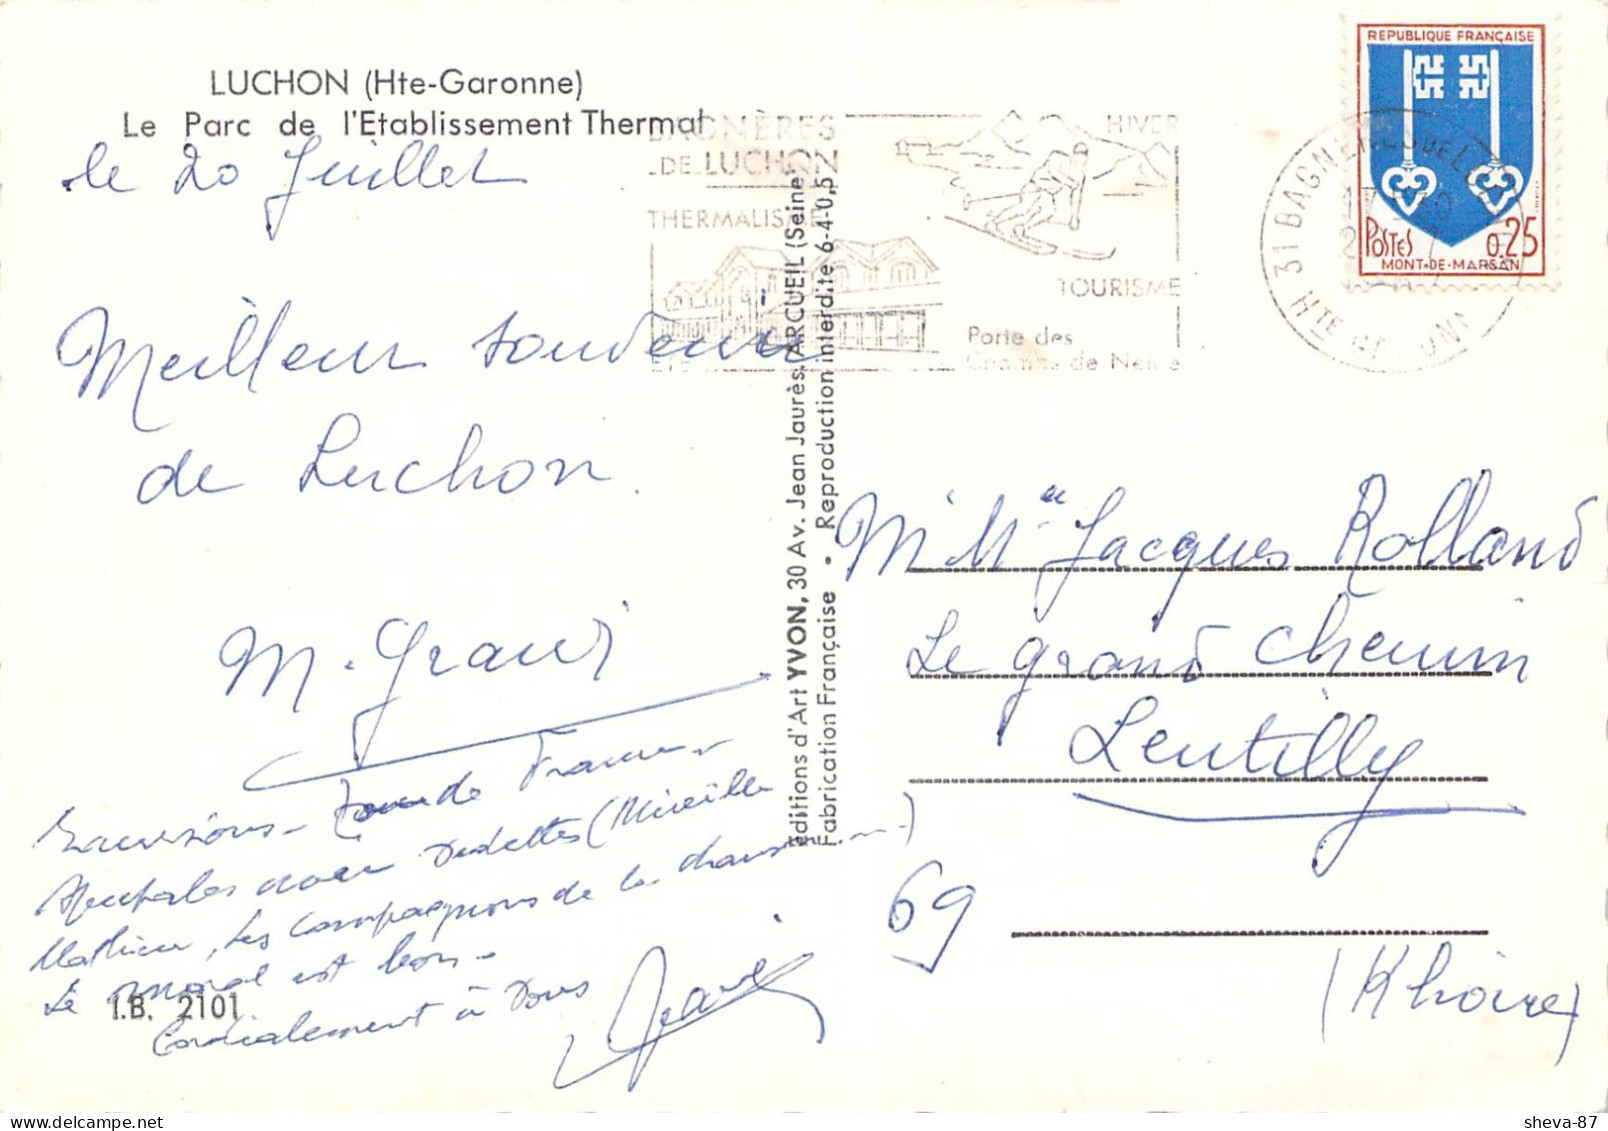 LUCHON (Hte-Garonne)
Le Parc de l'Etablissement Thermal
le 20 Juillet
Meilleur souvenir
de Luchon.
M. Gravi
Excursions - Tour de France -
spectacles avec vedettes (Mireille
Mathieu, les compagnons de la chanson ...)
Le moral est bon -
Cordialement à vous
I.B. 2101
Editions d'Art YVON, 30 Av. Jean Jaurès, ARCUEIL (Seine)
Fabrication Française • Reproduction interdite 6-4-0,5
BAGNÈRES
DE LUCHON
THERMALISME
ETE
HIVER
TOURISME
Porte des
de Neige
31 BAGNERES DE
Hte
REPUBLIQUE FRANÇAISE
POSTES 0.25
MONT-DE-MARSAN
M. Me Jacques Rolland
Le grand chemin
Lentilly
69
(Rhône)
sheva-87